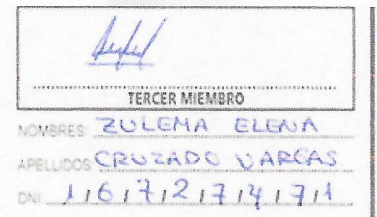 TERCER MIEMBRO
NOMBRES: ZULEMA ELENA
APELLIDOS: CRUZADO VARGAS
DNI: 16727471